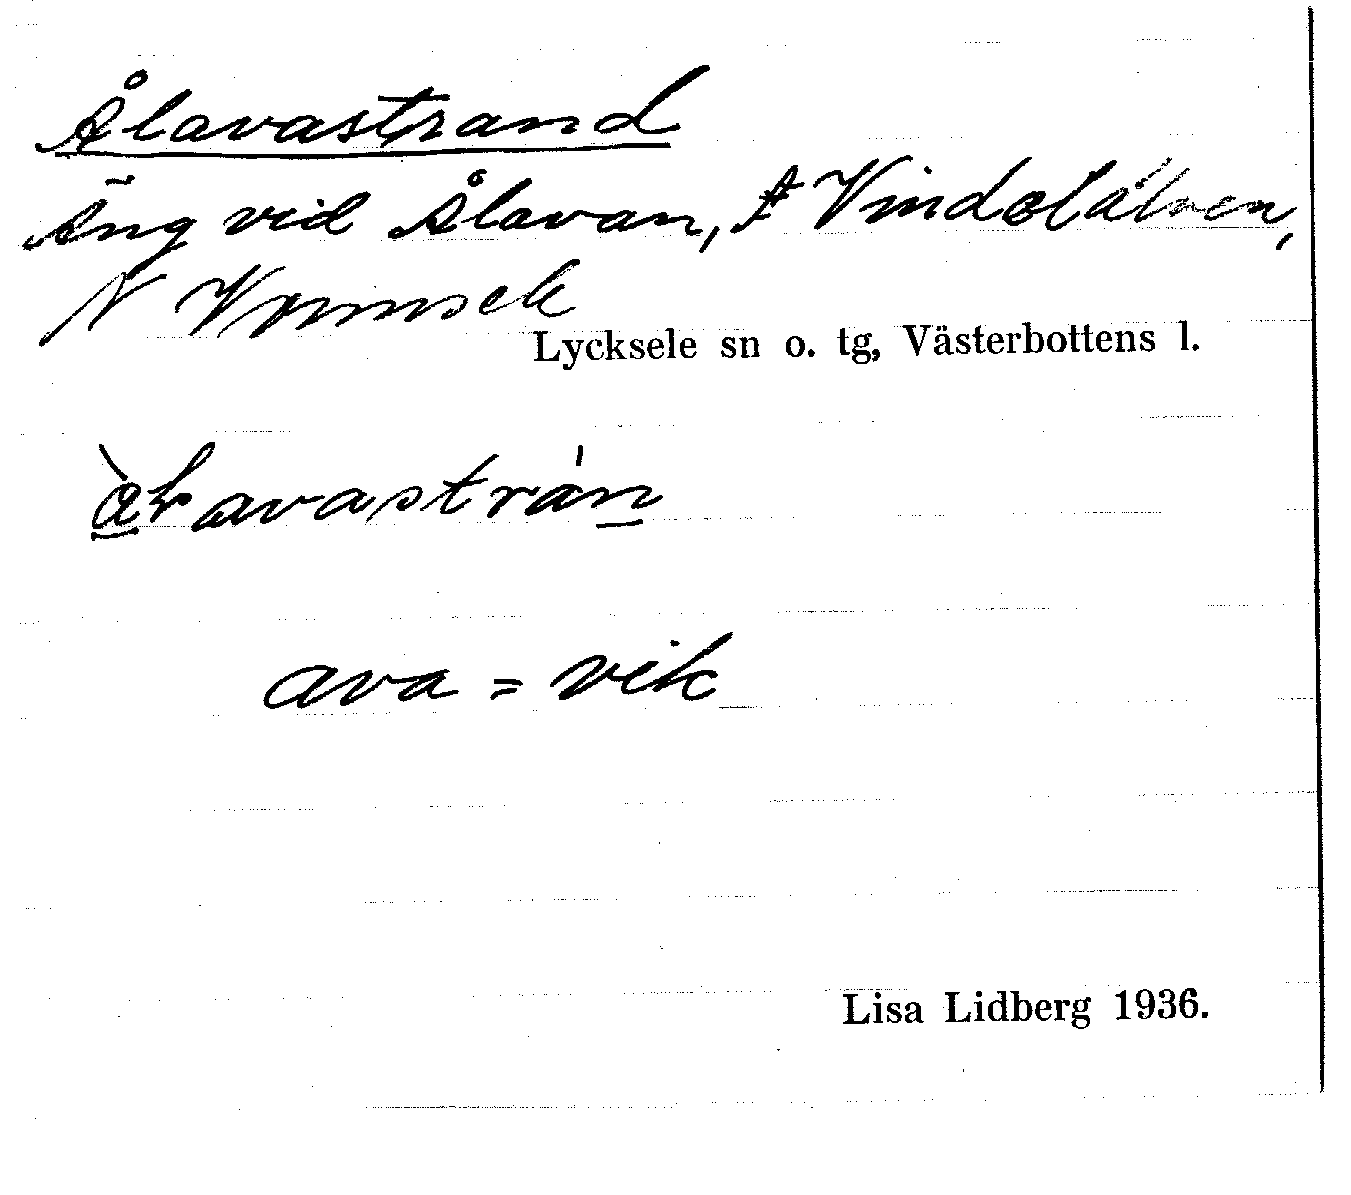 Ålavastrand
Äng vid Ålavan, f Vindelälven,
N Vormsele
Lycksele sn o. tg, Västerbottens l.
ava = vik
Lisa Lidberg 1936.